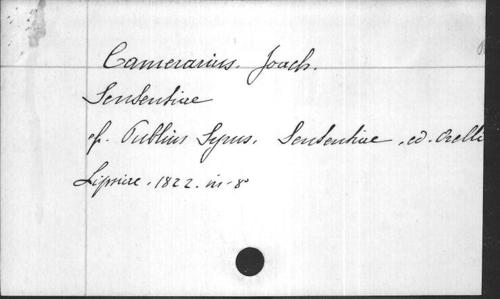 Camerarius. Joach.
Sententiae
cf. Publius Syrus. Sententiae, ed. Orelli
Lipsiae. 1822. in-8°